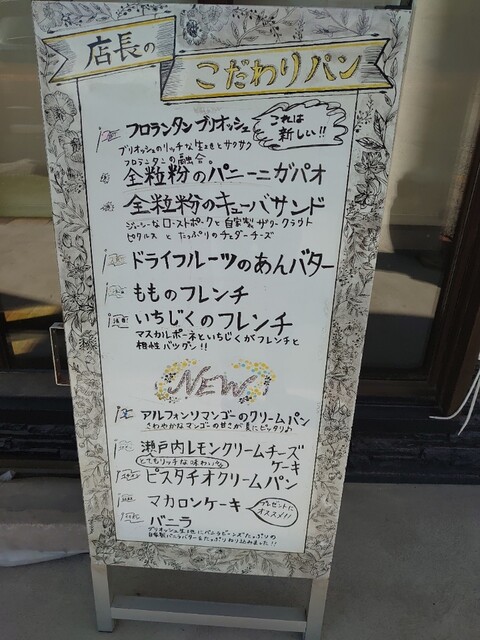 店長の
こだわりパン
フロランタンブリオッシュ
これは
新しい!!
ブリオッシュのリッチな生地とサクサク
フロランタンの融合。
全粒粉のパニーニガパオ
全粒粉のキューバサンド
ジューシーなローストポークと自家製ザワークラウト
ピクルスとたっぷりのチェダーチーズ
ドライフルーツのあんバター
もものフレンチ
いちじくのフレンチ
マスカルポーネといちじくがフレンチと
相性バツグン!!
NEW
アルフォンソマンゴーのクリームパン
さわやかなマンゴーの甘さが夏にピッタリ♪
瀬戸内レモンクリームチーズ
ケーキ
とてもリッチな味わい
ピスタチオクリームパン
マカロンケーキ
プレゼントに
オススメ!!
バニラ
ブリオッシュ生地にバニラビーンズたっぷりの
自家製バニラバターをたっぷりねり込みました!!